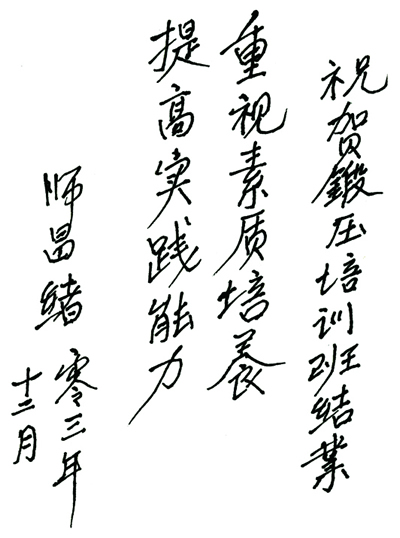 祝贺鍛压培训班結業
重视素质培养
提高实践能力
师昌緒
零三年
十二月